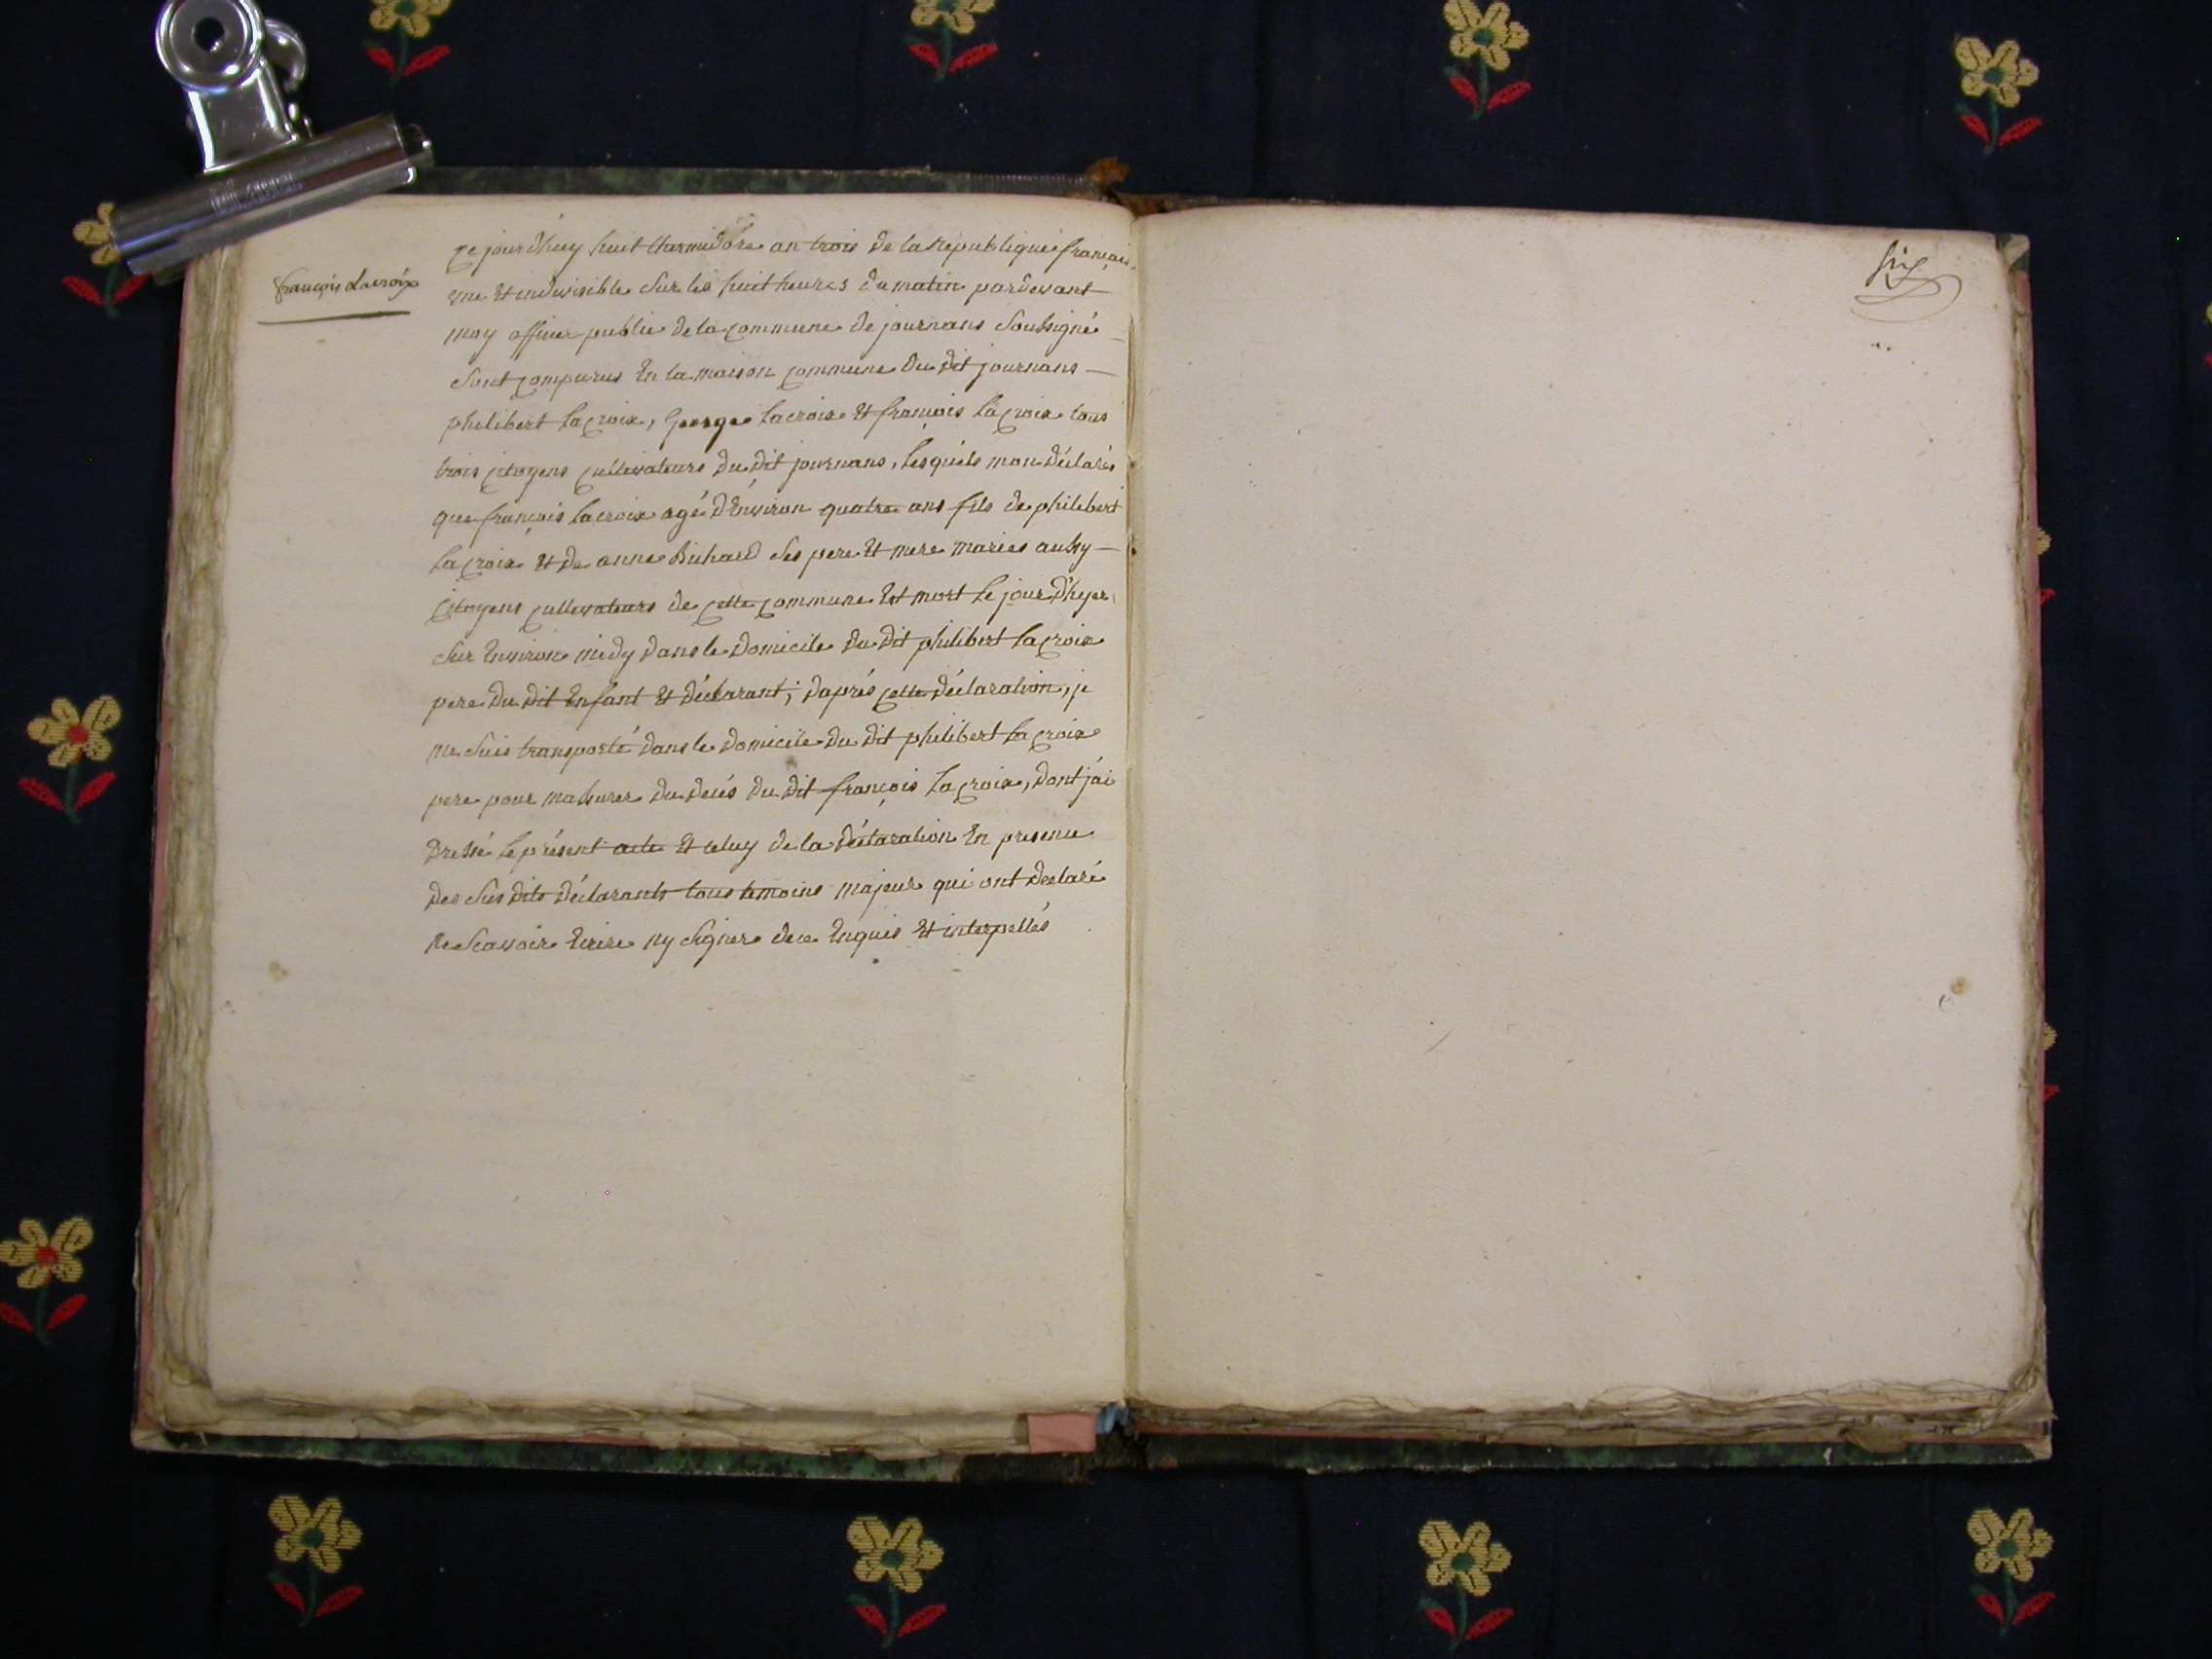 françois Lacroix
ce jourd'huy huit thermidore an trois de la République français.
une et indivisible sur les huit heures du matin pardevant
moy officier public de la commune de journans soussigné
sont comparus en la maison commune du dit journans
philibert lacroix, George lacroix et françois lacroix tous
trois citoyens cultivateurs du dit journans, lesquels mon déclarés
que françois lacroix agé d'environ quatre ans fils de philibert
lacroix et de anne Bichard ses pere et mere mariés aussy
citoyens cultivateurs de cette commune est mort le jour d'hyer
sur environ midy dans le domicile du dit philibert lacroix
pere du dit enfant et déclarant; daprés cette déclaration, je
me suis transporté dans le domicile du dit philibert lacroix
pere pour massurer du decés du dit françois lacroix, dont j'ai
dressé le présent acte et celuy de la déclaration en presence
des susdits déclarants tous temoins majeur qui ont declaré
ne scavoir ecrire ny signer de ce enquis et interpellés
six